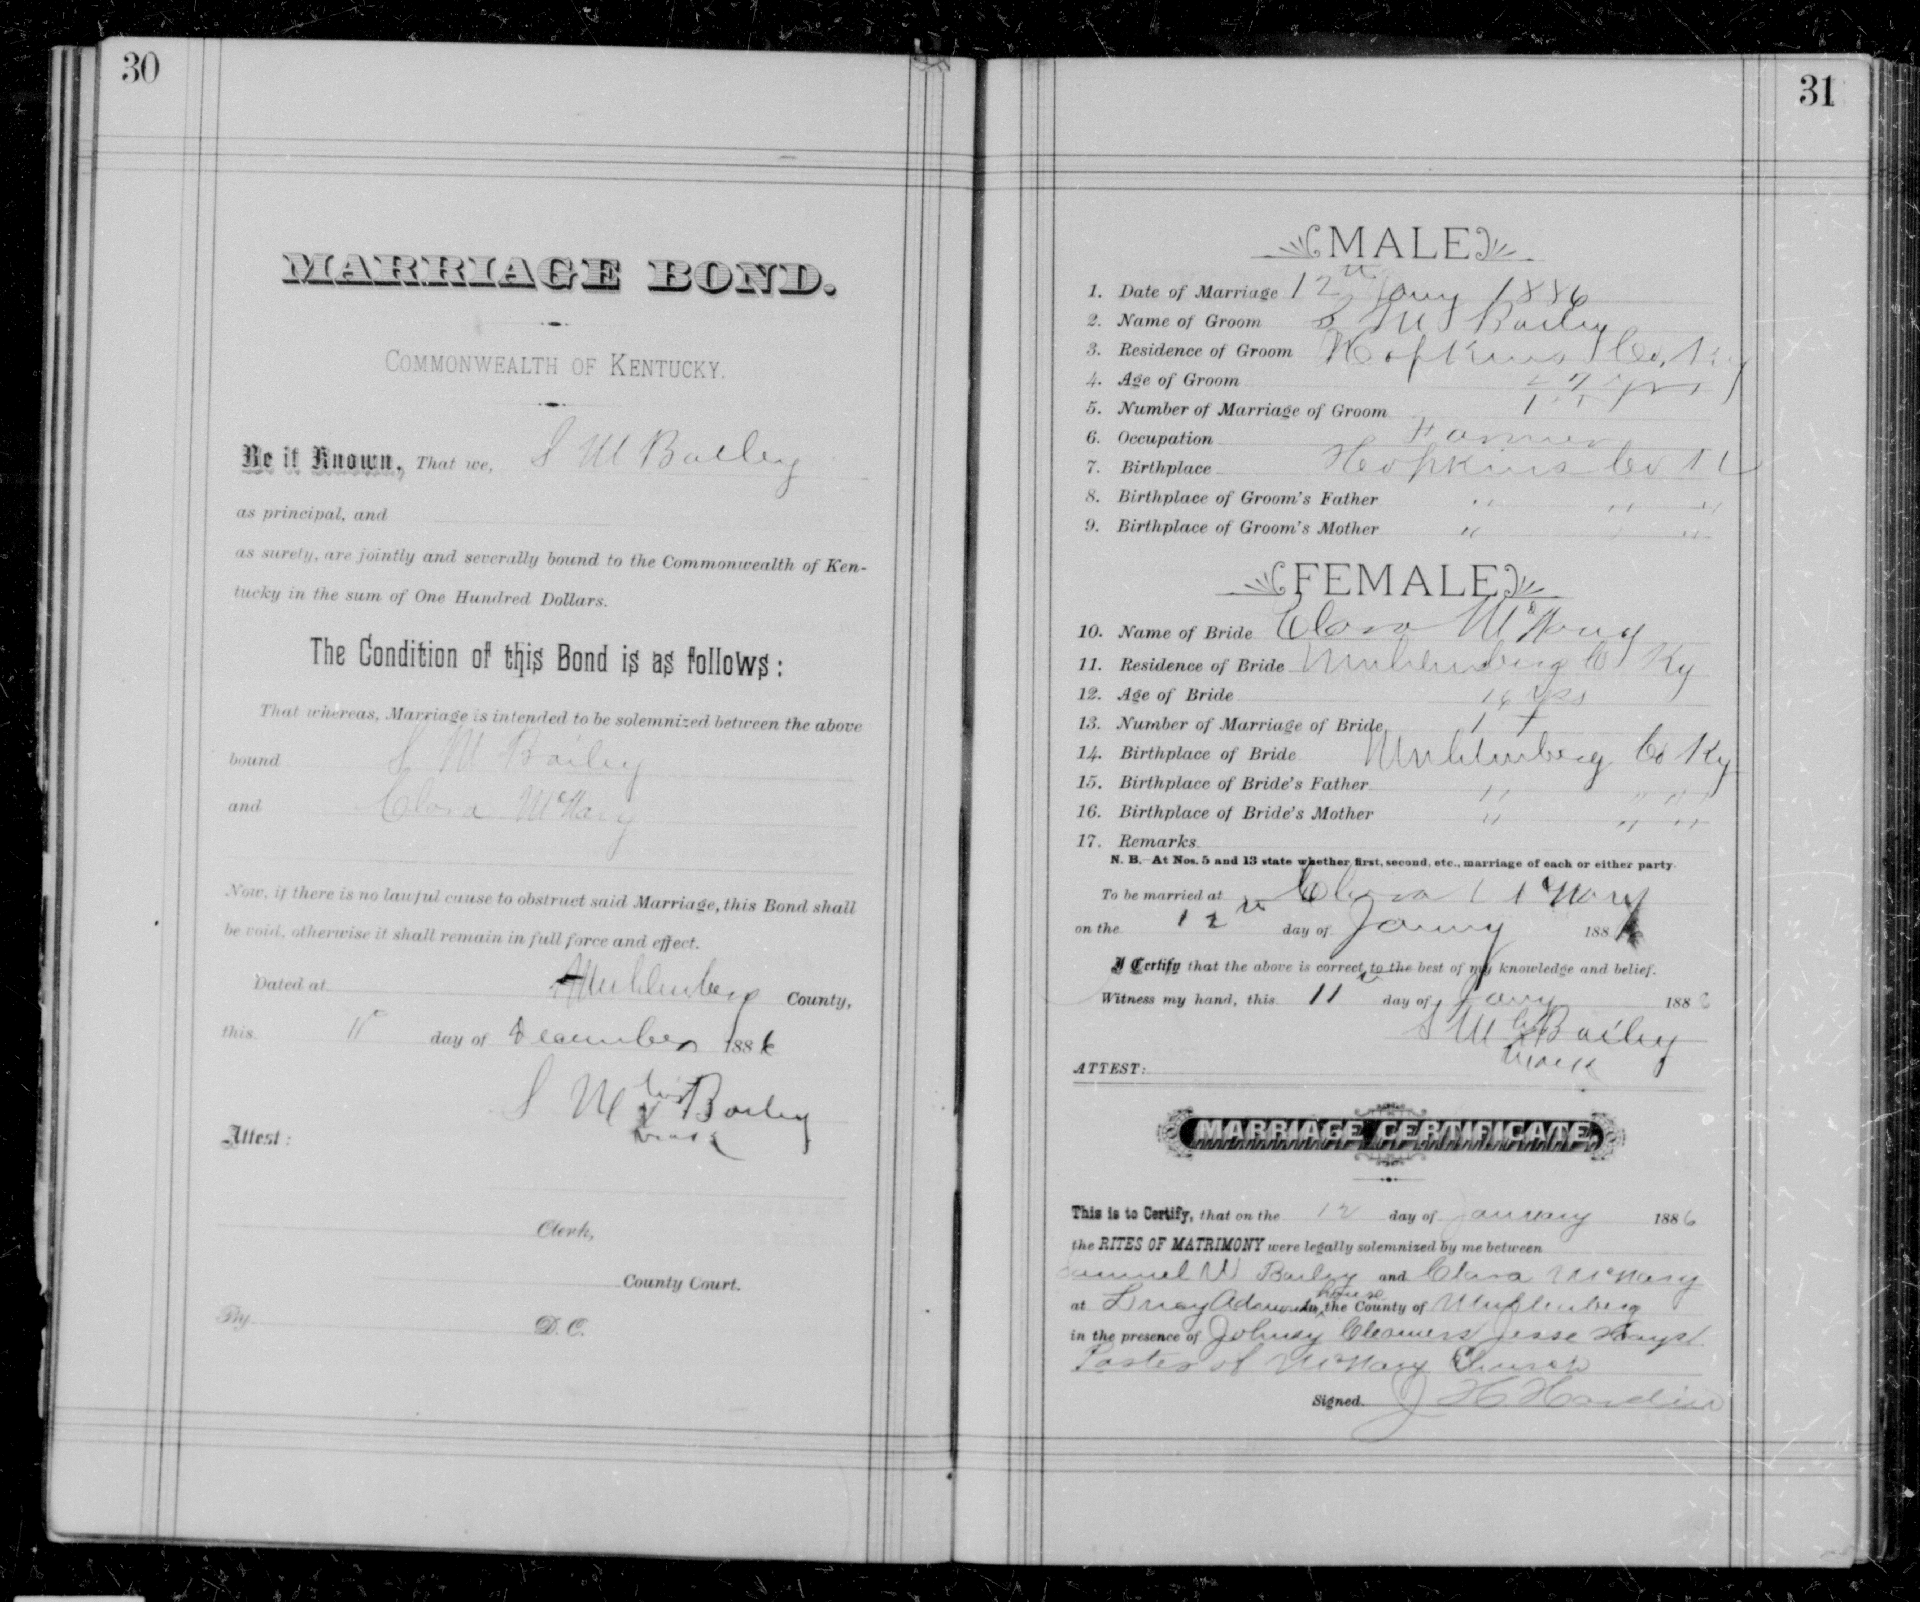 30
MARRIAGE BOND.
COMMONWEALTH OF KENTUCKY.
Be it Known, That we, S M Bailey
as principal, and
as surety, are jointly and severally bound to the Commonwealth of Ken-
tucky in the sum of One Hundred Dollars.
The Condition of this Bond is as follows:
That whereas, Marriage is intended to be solemnized between the above
bound S M Bailey
and Clara McNary
Now, if there is no lawful cause to obstruct said Marriage, this Bond shall
be void, otherwise it shall remain in full force and effect.
Dated at Muhlenberg County,
this 11 day of December 1886
S M his x mark Bailey
Attest:
Clerk,
County Court.
By D. C.
31
MALE
1. Date of Marriage 12th Jany 1886
2. Name of Groom S M Bailey
3. Residence of Groom Hopkins Co, Ky
4. Age of Groom yrs
5. Number of Marriage of Groom 1st
6. Occupation Farmer
7. Birthplace Hopkins Co Ky
8. Birthplace of Groom's Father " " "
9. Birthplace of Groom's Mother " " "
FEMALE
10. Name of Bride Clara McNary
11. Residence of Bride Muhlenberg Co Ky
12. Age of Bride 16 yrs
13. Number of Marriage of Bride 1st
14. Birthplace of Bride Muhlenberg Co Ky
15. Birthplace of Bride's Father " " "
16. Birthplace of Bride's Mother " " "
17. Remarks
N. B.—At Nos. 5 and 13 state whether first, second, etc., marriage of each or either party.
To be married at Clara McNary
on the 12th day of Jany 1886
I Certify that the above is correct to the best of my knowledge and belief.
Witness my hand, this 11 day of Jany 1886
S M his x Bailey
mark
ATTEST:
MARRIAGE CERTIFICATE.
This is to Certify, that on the 12 day of January 1886
the RITES OF MATRIMONY were legally solemnized by me between
Samuel W Bailey and Clara McNary
at Adams house in the County of Muhlenberg
in the presence of Johney Clemens Jesse Hays
Paster of McNary Church
Signed. J H Hardin